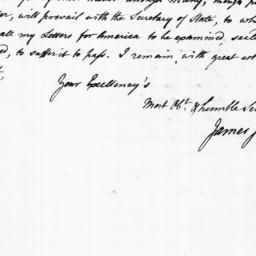 er, will prevail with the Secretary of State, to wh
all my Letters for America to be examined, seal
ed, to suffer it to pass. I remain, with great es
Your Excellency's
Most Obt. & humble Ser
James J